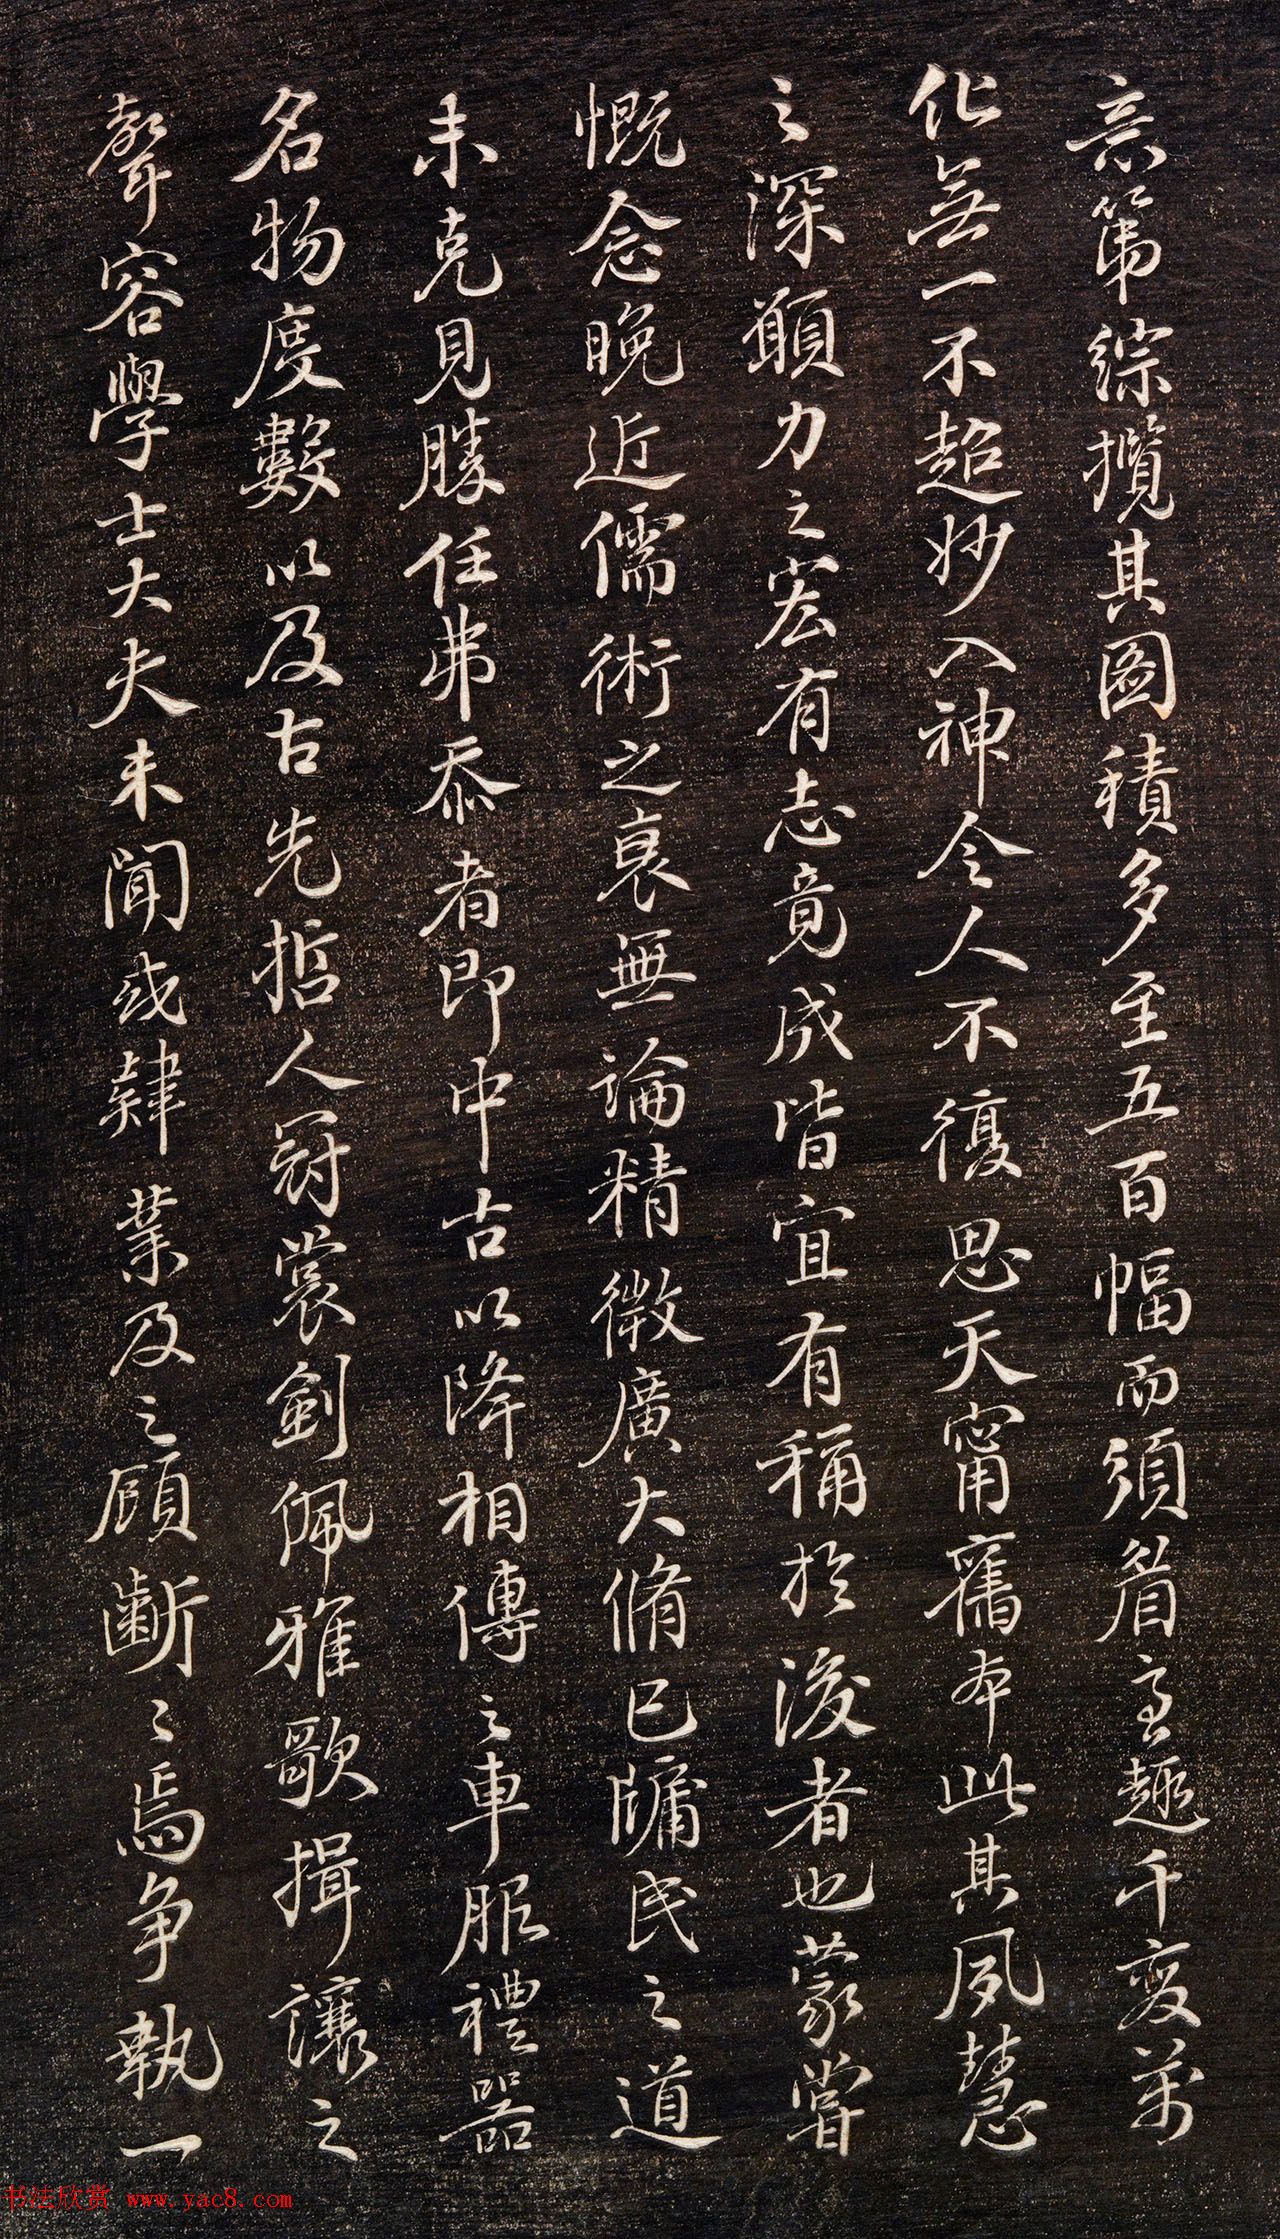 意第綜攬其圖積多至五百幅而須眉意趣千变万
化無一不超妙入神令人不復思天甯舊本此其夙慧
之深願力之宏有志竟成皆宜有稱於後者也蒙嘗
慨念晚近儒術之衰無論精微廣大脩己牖民之道
未克見勝任弗忝者即中古以降相傳之車服禮器
名物度數以及古先哲人冠裳劍佩雅歌揖讓之
聲容學士大夫未聞或肄業及之顧齗〻焉争執一
书法欣赏 www.yac8.com